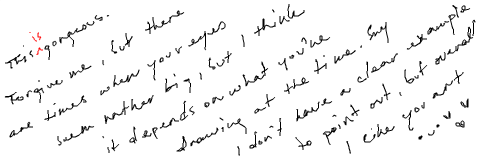 This is gorgeous.
Forgive me, but there
are times when your eyes
seem rather big, but I think
it depends on what you're
drawing at the time. Srry
I don't have a clear example
to point out, but overall
I like your art